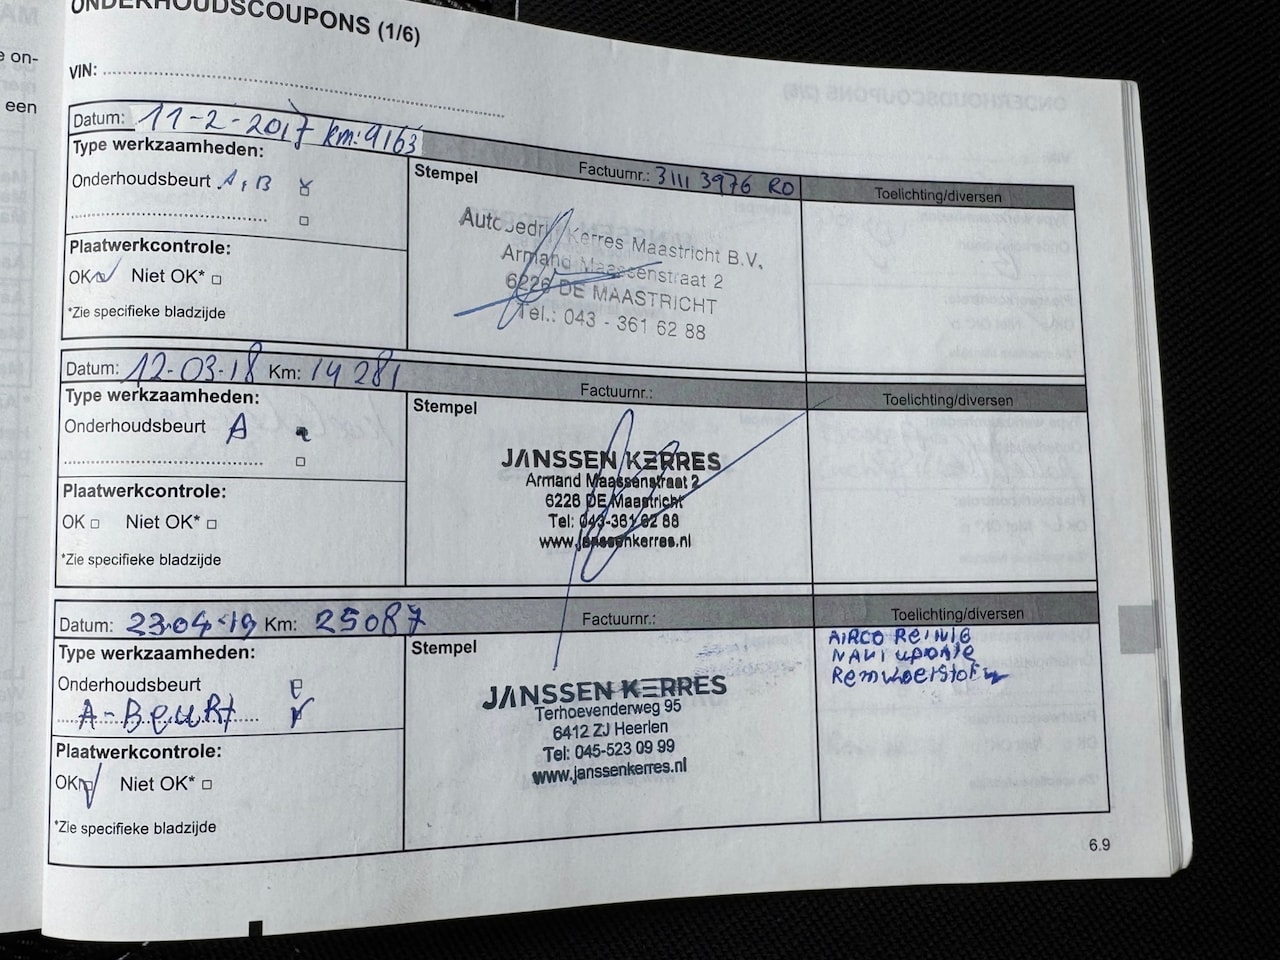 e on-
een
ONDERHOUDSCOUPONS (1/6)
VIN:
Datum: 11-2-2017 km: 9163
Type werkzaamheden:
Onderhoudsbeurt A, B
Plaatwerkcontrole:
OK Niet OK*
*Zie specifieke bladzijde
Stempel
Factuurnr.: 3111 3976 RO
Toelichting/diversen
Autobedrijf Kerres Maastricht B.V.
Armand Maassenstraat 2
6226 DE MAASTRICHT
Tel.: 043 - 361 62 88
Datum: 12-03-18 Km: 14 281
Type werkzaamheden:
Onderhoudsbeurt A
Plaatwerkcontrole:
OK Niet OK*
*Zie specifieke bladzijde
Stempel
Factuurnr.:
Toelichting/diversen
JANSSEN KERRES
Armand Maassenstraat 2
6226 DE Maastricht
Tel: 043-361 62 88
www.janssenkerres.nl
Datum: 23-04-19 Km: 25087
Type werkzaamheden:
Onderhoudsbeurt
A-BeuRt
Plaatwerkcontrole:
OK Niet OK*
*Zie specifieke bladzijde
Stempel
Factuurnr.:
Toelichting/diversen
JANSSEN KERRES
Terhoevenderweg 95
6412 ZJ Heerlen
Tel: 045-523 09 99
www.janssenkerres.nl
AIRCO REINIG
NAVI UPDATE
Remvloeistof
6.9